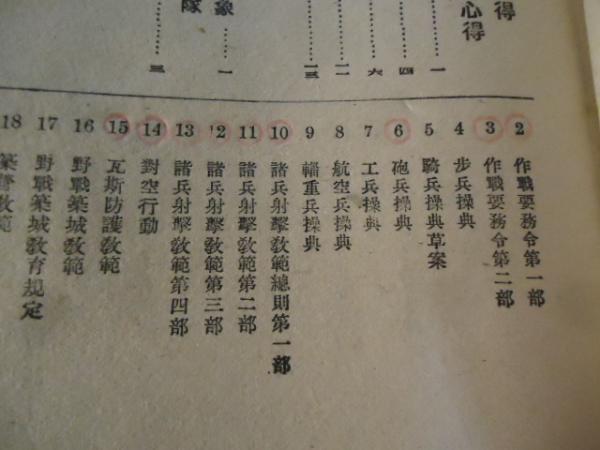 得
心得
一
四
六
一二
一三
象
一
隊
三
2 作戰要務令第一部
3 作戰要務令第二部
4 步兵操典
5 騎兵操典草案
6 砲兵操典
7 工兵操典
8 航空兵操典
9 輜重兵操典
10 諸兵射擊敎範總則第一部
11 諸兵射擊敎範第二部
12 諸兵射擊敎範第三部
13 諸兵射擊敎範第四部
14 對空行動
15 瓦斯防護敎範
16 野戰築城敎範
17 野戰築城敎育規定
18 築營敎範